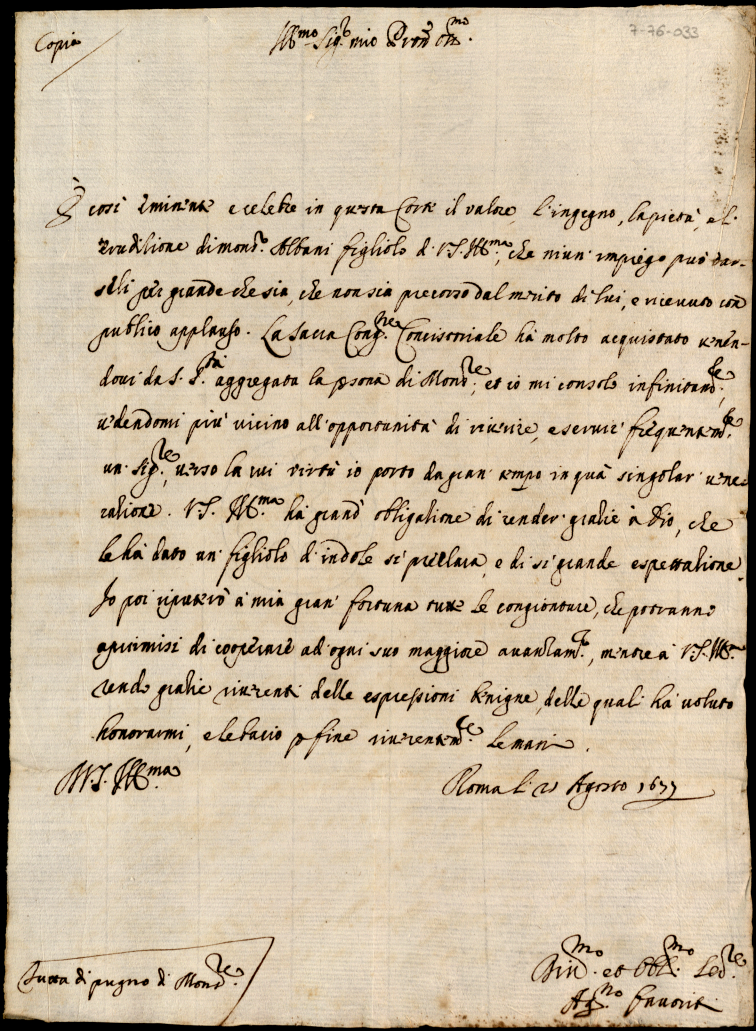 Copia
Ill.mo Sig.r mio Pron Oss.mo
7-76-033
È così eminente e celebre in questa Corte il valore, l'ingegno, la pietà, e l'
eruditione di mons.r Albani figliolo di V.S. Ill.ma, che niun' impiego può dar-
seli per grande che sia, che non sia precorso dal merito di lui, e ricevuto con
publico applauso. La Sacra Cong.ne Concistoriale hà molto acquistato venen-
dovi da S. S.tà aggregata la psona di Mons.re, et io mi consolo infinitam.te,
vedendomi più vicino all'opportunità di riverire, e servire frequentem.te
un Sig.re, verso la cui virtù io porto da gran tempo in quà singolar vene-
ratione. V.S. Ill.ma hà grand' obligatione di render gratie à Dio, che
le hà dato un figliolo d'indole sì preclara, e di sì grande espettatione.
Io poi riputerò à mia gran fortuna tutte le congionture, che potranno
aprirmisi di cooperare ad ogni suo maggiore avantam.to, mentre à V.S. Ill.ma
rendo gratie riverenti delle espressioni benigne, delle quali hà voluto
honorarmi, e le bacio p fine riverentem.te le mani.
Di V.S. Ill.ma
Roma li 21 Agosto 1677
Tutta di pugno di Mons.re
Div.mo et Obl.mo Ser.re
Ag.no Favoriti